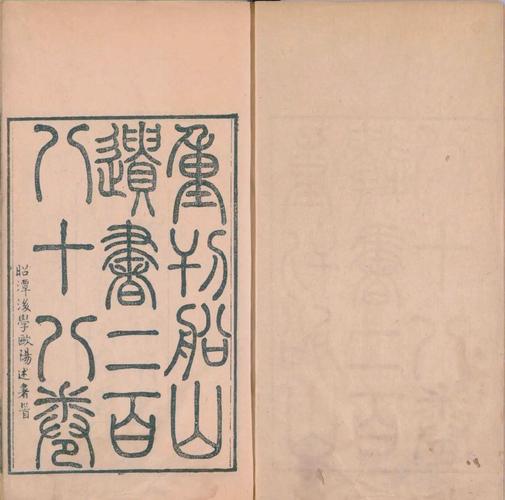 重刊船山
遺書二百
八十八卷
昭潭後學歐陽述署首